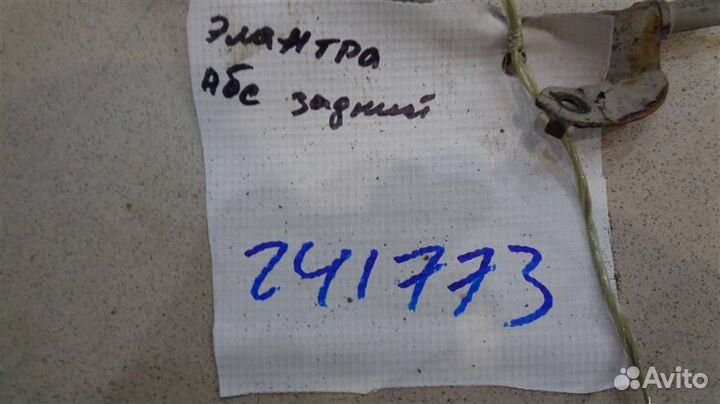 Элантра
Абс задний
241773
Avito